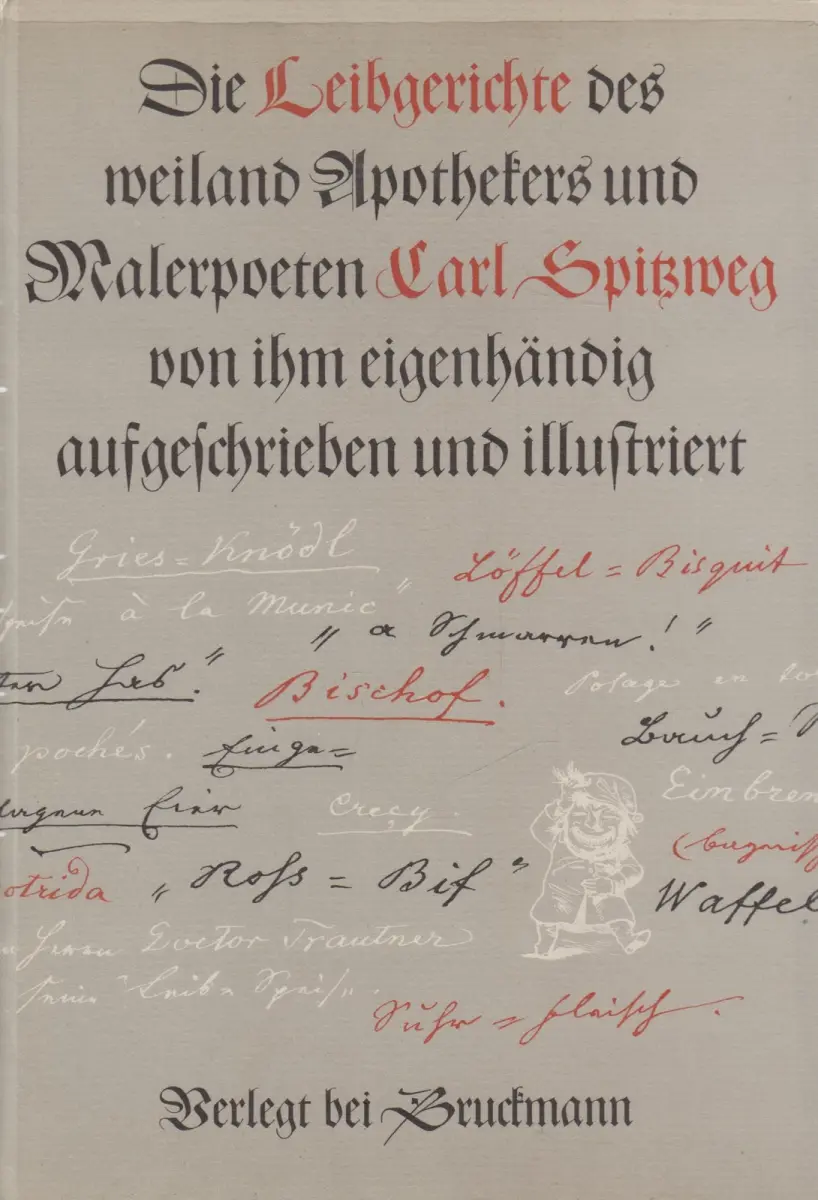 Die Leibgerichte des
weiland Apothekers und
Malerpoeten Carl Spitzweg
von ihm eigenhändig
aufgeschrieben und illustriert
Gries=Knödl
Löffel=Bisquit
speise à la Munic"
"a Schmarren!"
Has."
Bischof.
Potage en to
pochés.
Einge=
Bauch=
lagene Eier
Creçy.
Einbren
otrida
"Ross=Bif"
Waffel
Herrn Doctor Trautner
seine Leib=Speise.
Suhr=fleisch.
Verlegt bei Bruckmann